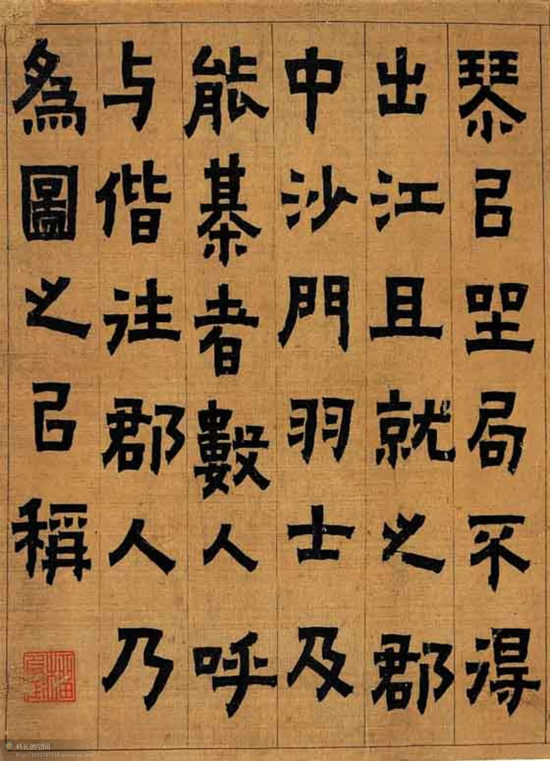 琹㠯坐局不得
出江且就之郡
中沙門羽士及
能棊者數人呼
与偕往郡人乃
為圖之㠯稱